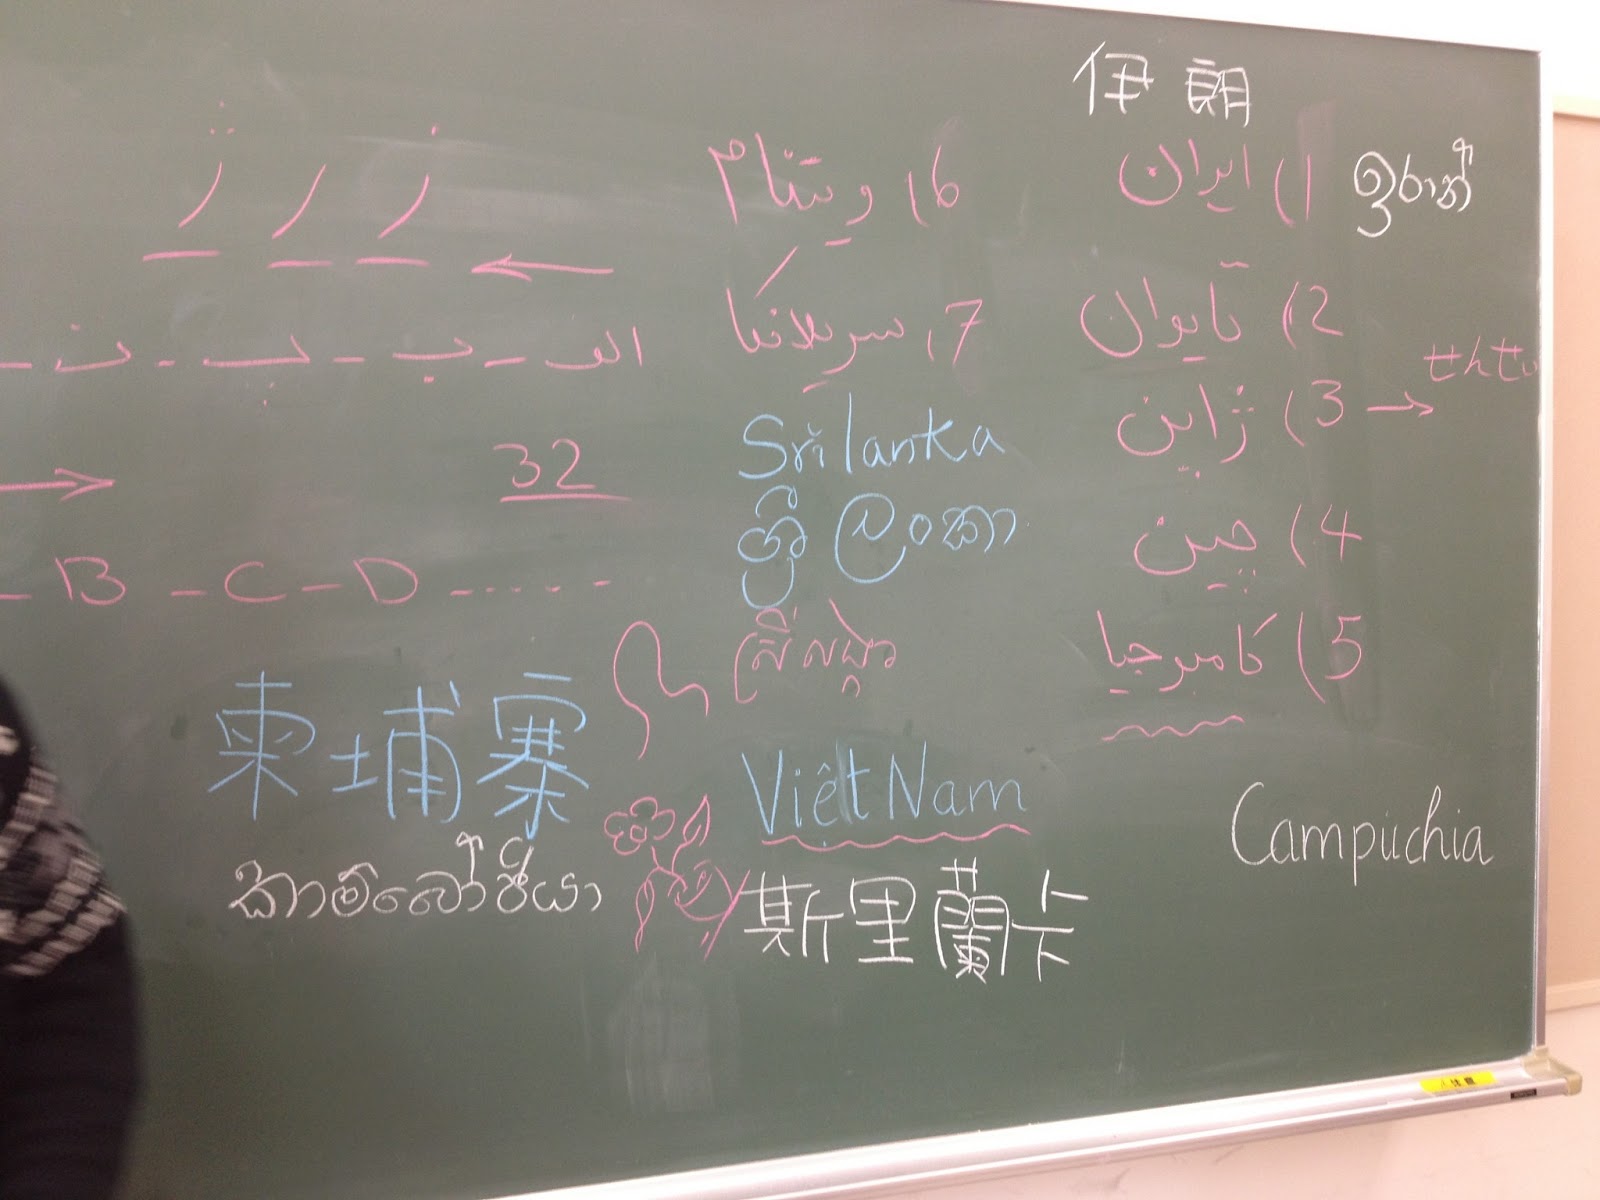 伊朗
1) ایران
ඉරාන්
2) تایوان
3) ژاپن
4) چین
5) کامبوجیا
Campuchia
6) ویتنام
7) سریلانکا
Sri lanka
ශ්‍රී ලංකා
ស្រីលង្កា
Việt Nam
斯里蘭卡
ز ر ژ
الف - ب - پ - ت -
32
B - C - D -.....
柬埔寨
කාම්බෝජියා